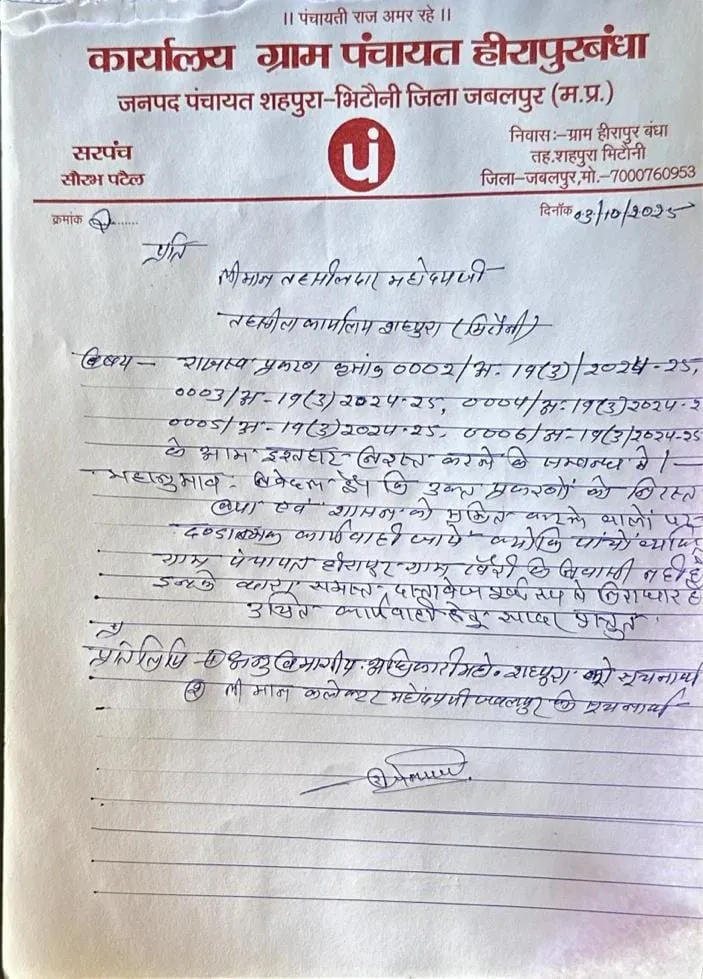 ।। पंचायती राज अमर रहे ।।
कार्यालय ग्राम पंचायत हीरापुरबंधा
जनपद पंचायत शहपुरा-भिटौनी जिला जबलपुर (म.प्र.)
सरपंच
सौरभ पटेल
पं
निवास:-ग्राम हीरापुर बंधा
तह.शहपुरा भिटौनी
जिला-जबलपुर,मो.-7000760953
क्रमांक ........
दिनॉक 03/10/2025
प्रति
श्रीमान तहसीलदार महोदयजी
तहसील कार्यालय शहपुरा (भिटौनी)
विषय - राजस्व प्रकरण क्रमांक 0002/अ-19(3)/2024-25,
0003/अ-19(3)2024-25, 0004/अ-19(3)2024-2
0005/अ-19(3)2024-25, 0006/अ-19(3)2024-25
के आम इश्तहार निरस्त करने के सम्बन्ध में ।-
महानुभाव - निवेदन है कि उक्त प्रकरणों को निरस्त
एवं शासन को करने वालों पर
दण्डात्मक कार्यवाही जाये क्योंकि पांचो व्यक्ति
ग्राम पंचायत हीरापुर ग्राम के निवासी नहीं है
इनके द्वारा समस्त दस्तावेज पूर्ण रूप से निराधार है
उचित कार्यवाही हेतु सादर प्रस्तुत
प्रतिलिपि - ① अनुविभागीय अधिकारी महो. शहपुरा को सूचनार्थ
② श्रीमान कलेक्टर महोदयजी जबलपुर के सूचनार्थ